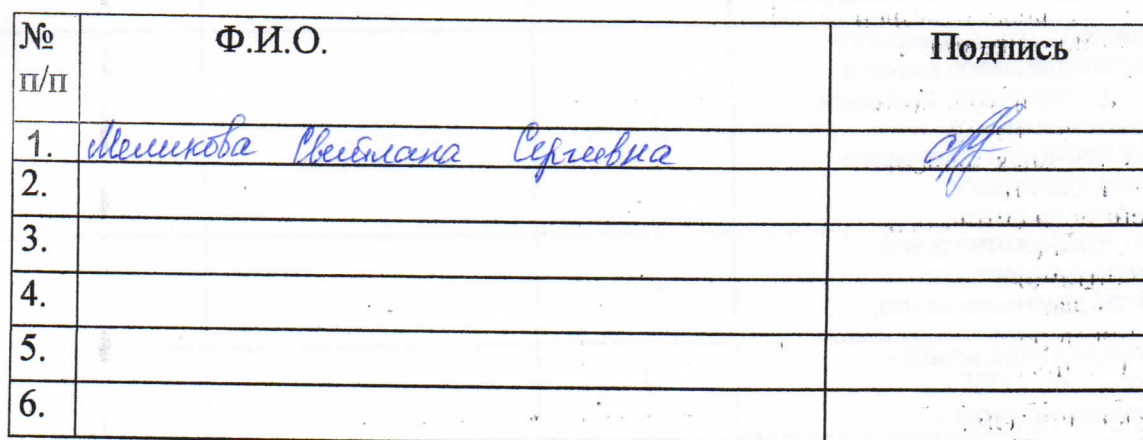 № п/п Ф.И.О. Подпись
1. Меликова Светлана Сергеевна
2.
3.
4.
5.
6.